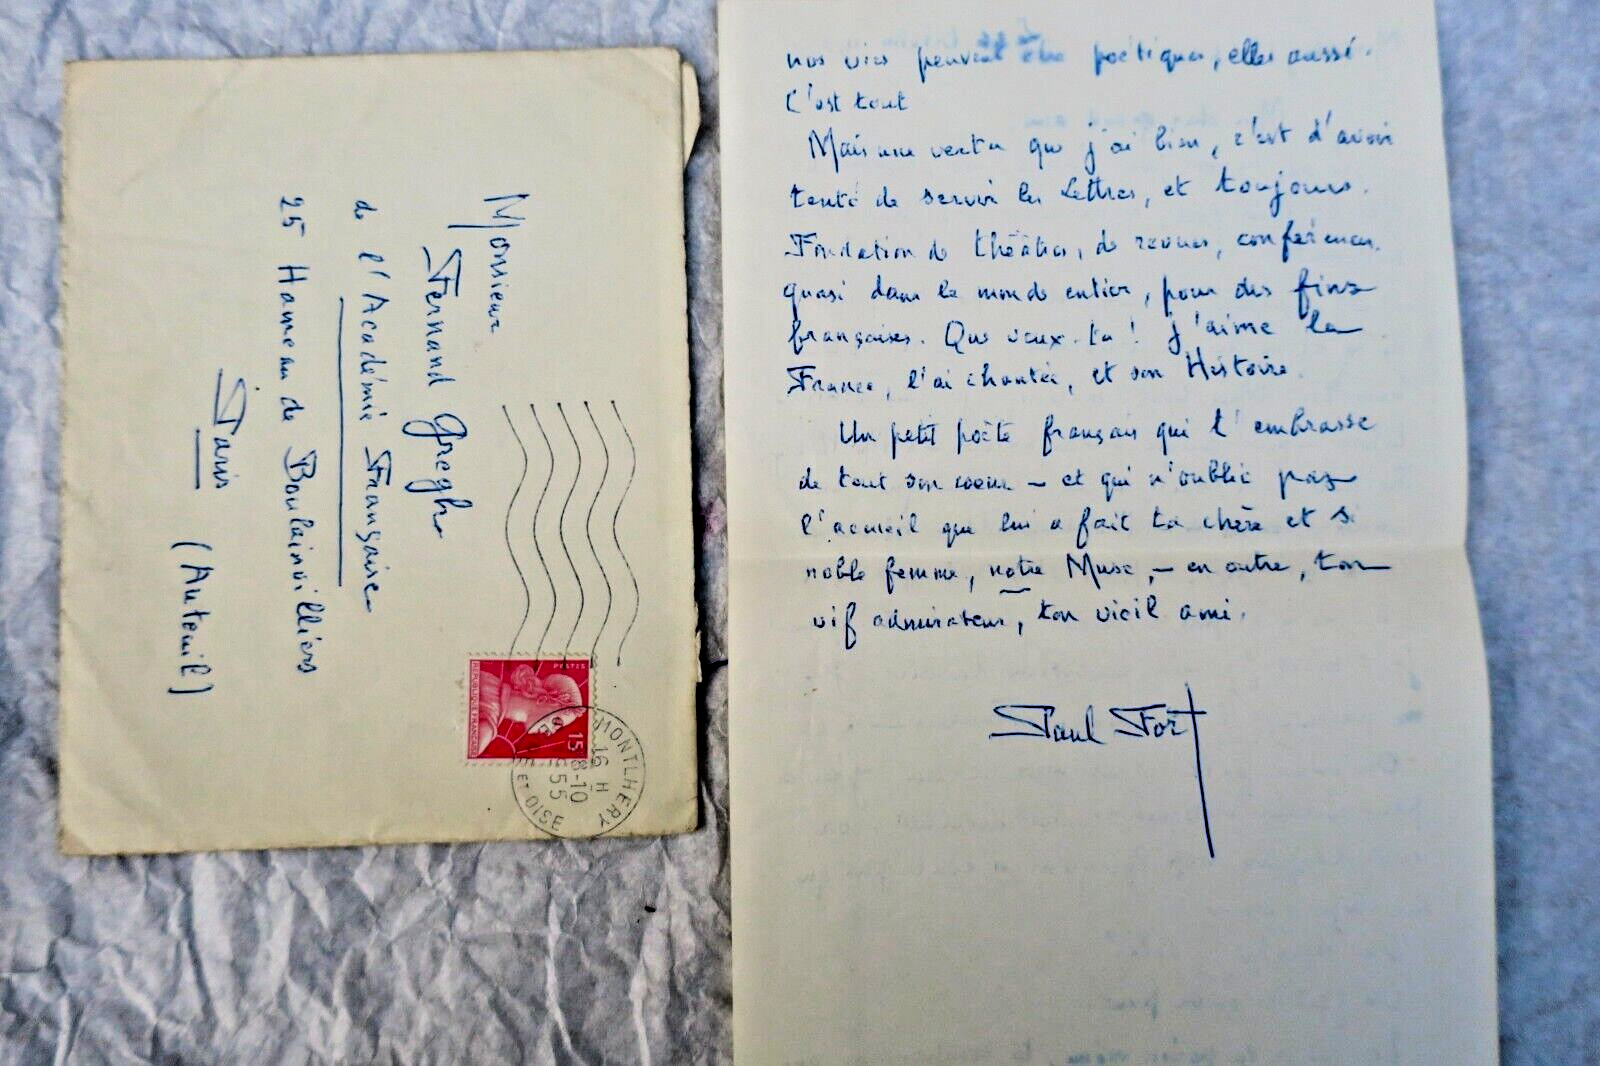 Monsieur
Fernand Gregh
de l'Académie Française
25 Hameau de Boulainvilliers
Paris
(Auteuil)
POSTES
REPUBLIQUE FRANÇAISE
15F
MONTLHERY
16 H
8-10
1955
ET OISE
nos vies peuvent être poétiques, elles aussi.
C'est tout
Mais une vertu que j'ai bien, c'est d'avoir
tenté de servir les Lettres, et toujours.
Fondation de théâtres, de revues, conférences
quasi dans le monde entier, pour des fins
françaises. Que veux-tu ! j'aime la
France, l'ai chantée, et son Histoire.
Un petit poète français qui t'embrasse
de tout son cœur — et qui n'oublie pas
l'accueil que lui a fait ta chère et si
noble femme, notre Muse, — en outre, ton
vif admirateur, ton vieil ami.
Paul Fort